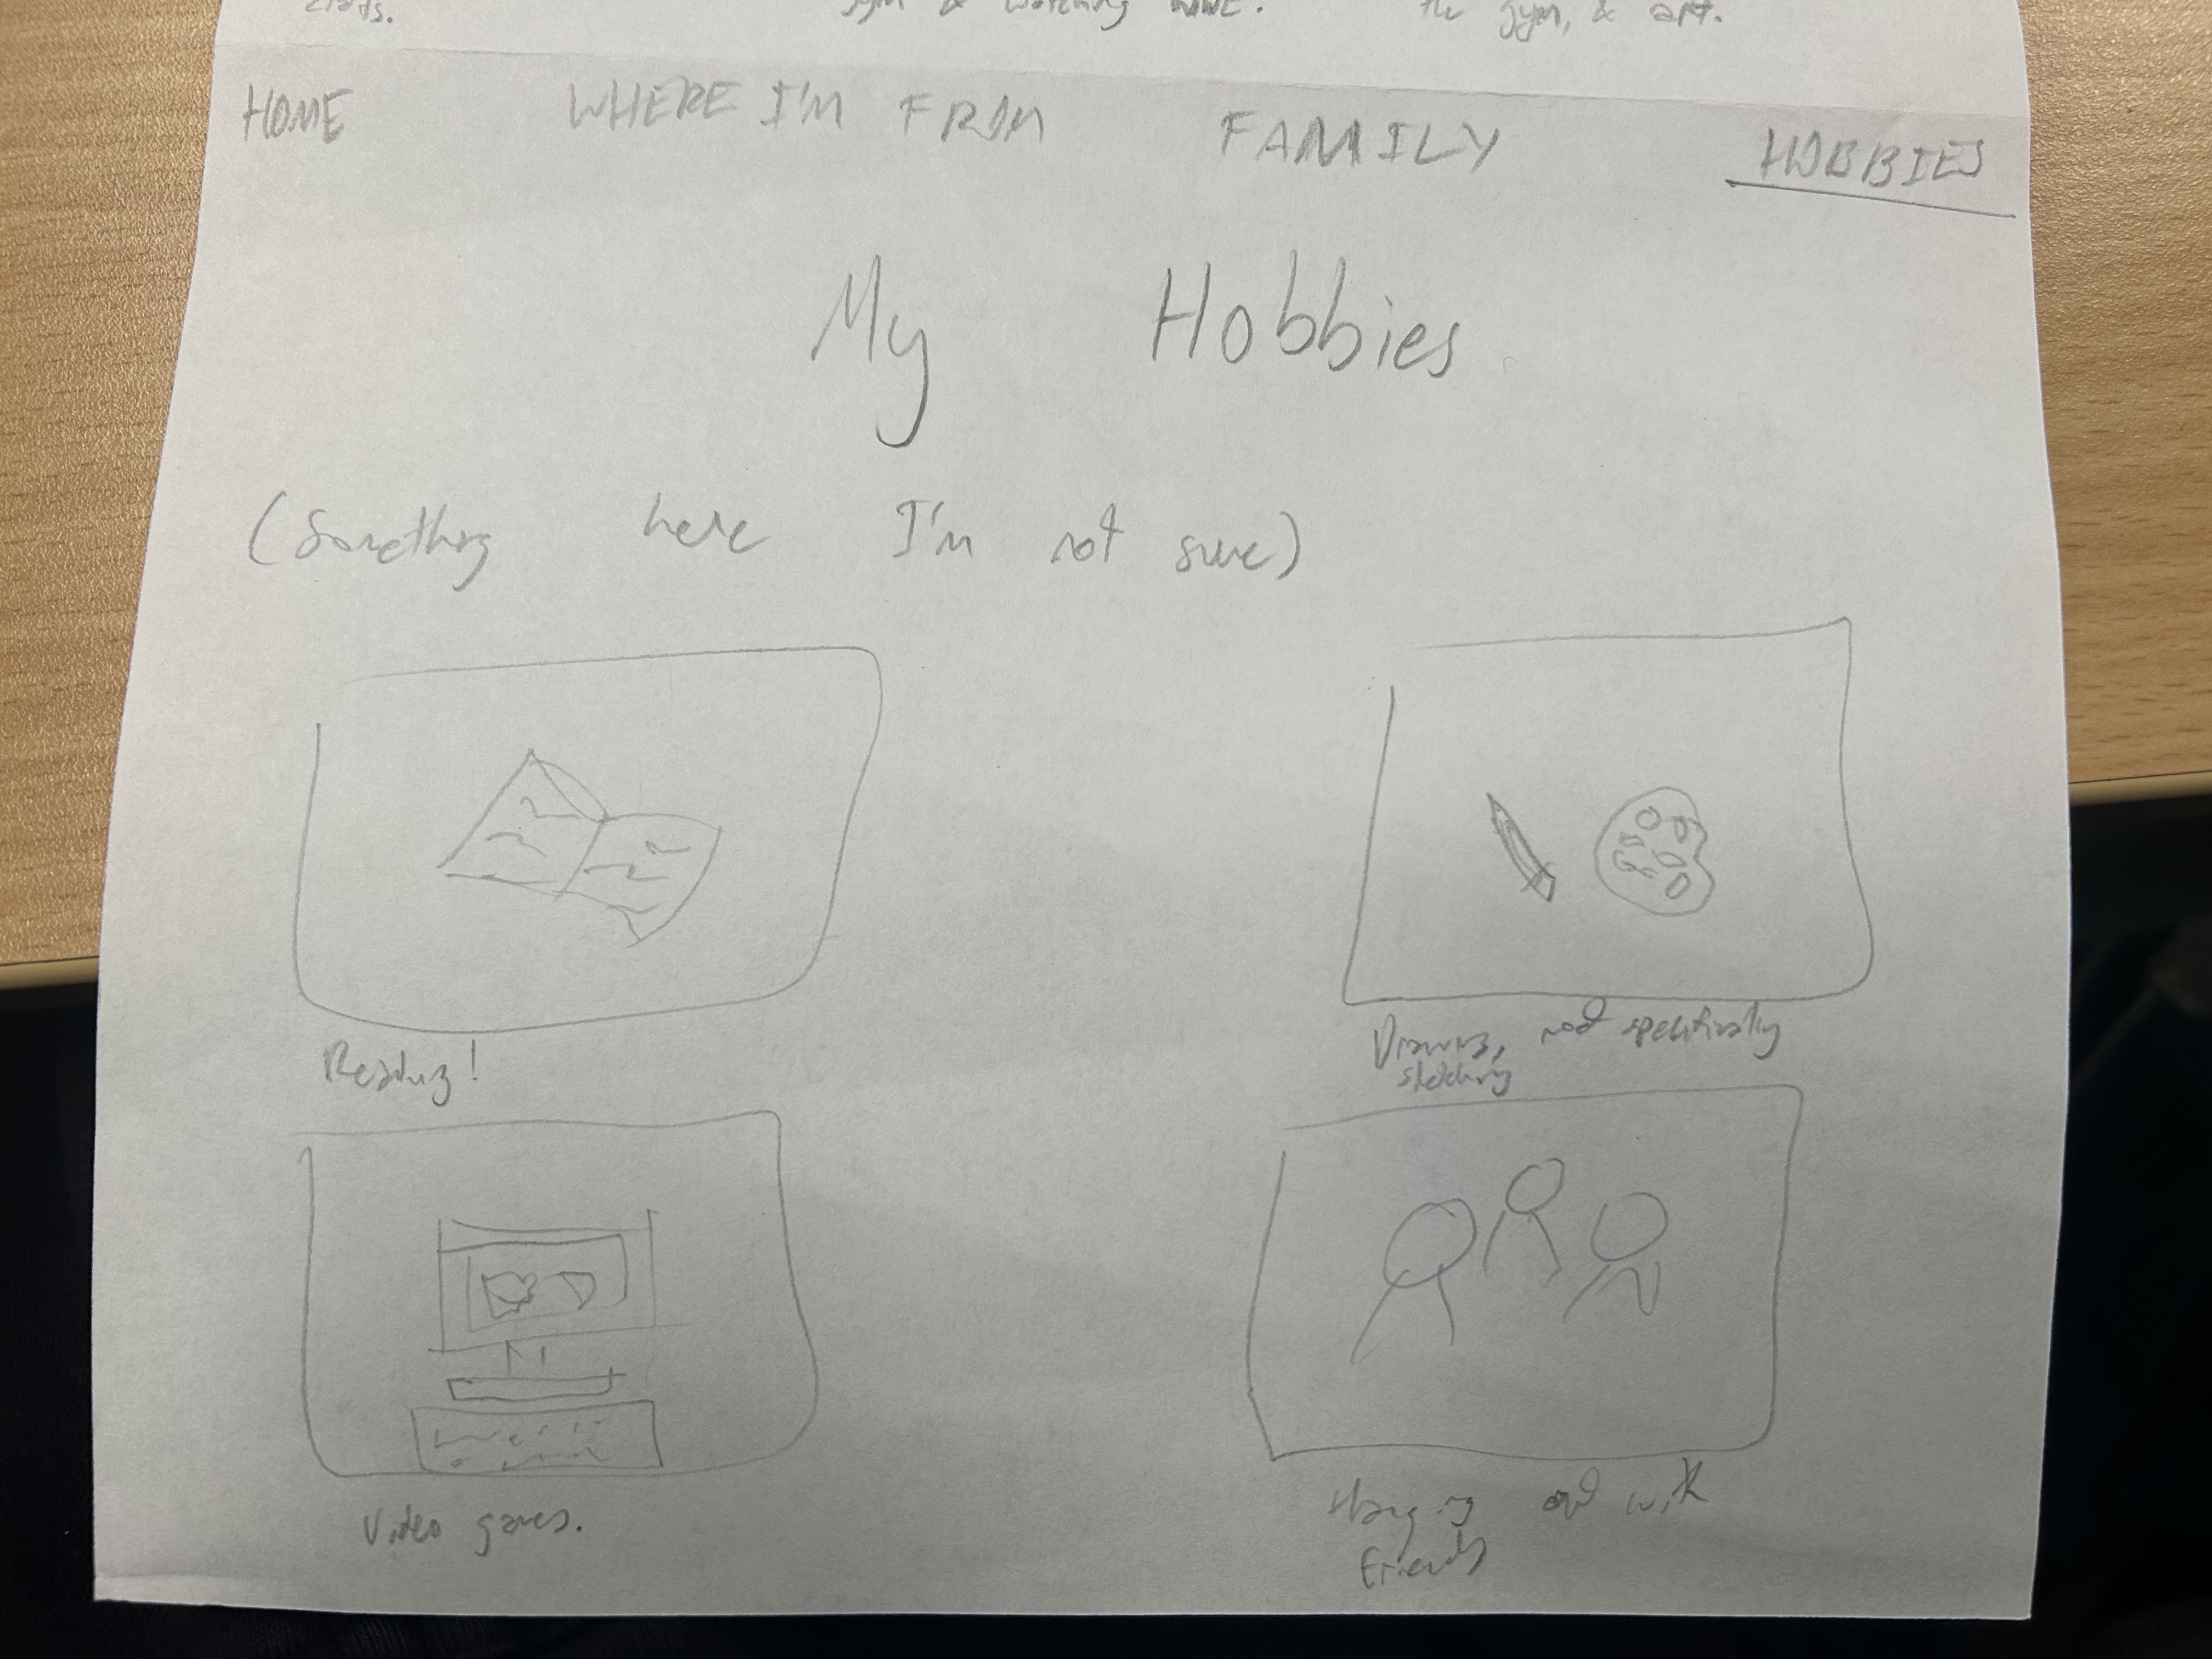 crafts.
gym & watching NNE.
the gym, & art.
HOME WHERE I'M FROM FAMILY HOBBIES
My Hobbies
(Something here I'm not sure)
Reading!
Drawing, not specifically
sketching
Video games.
Hanging out with
friends